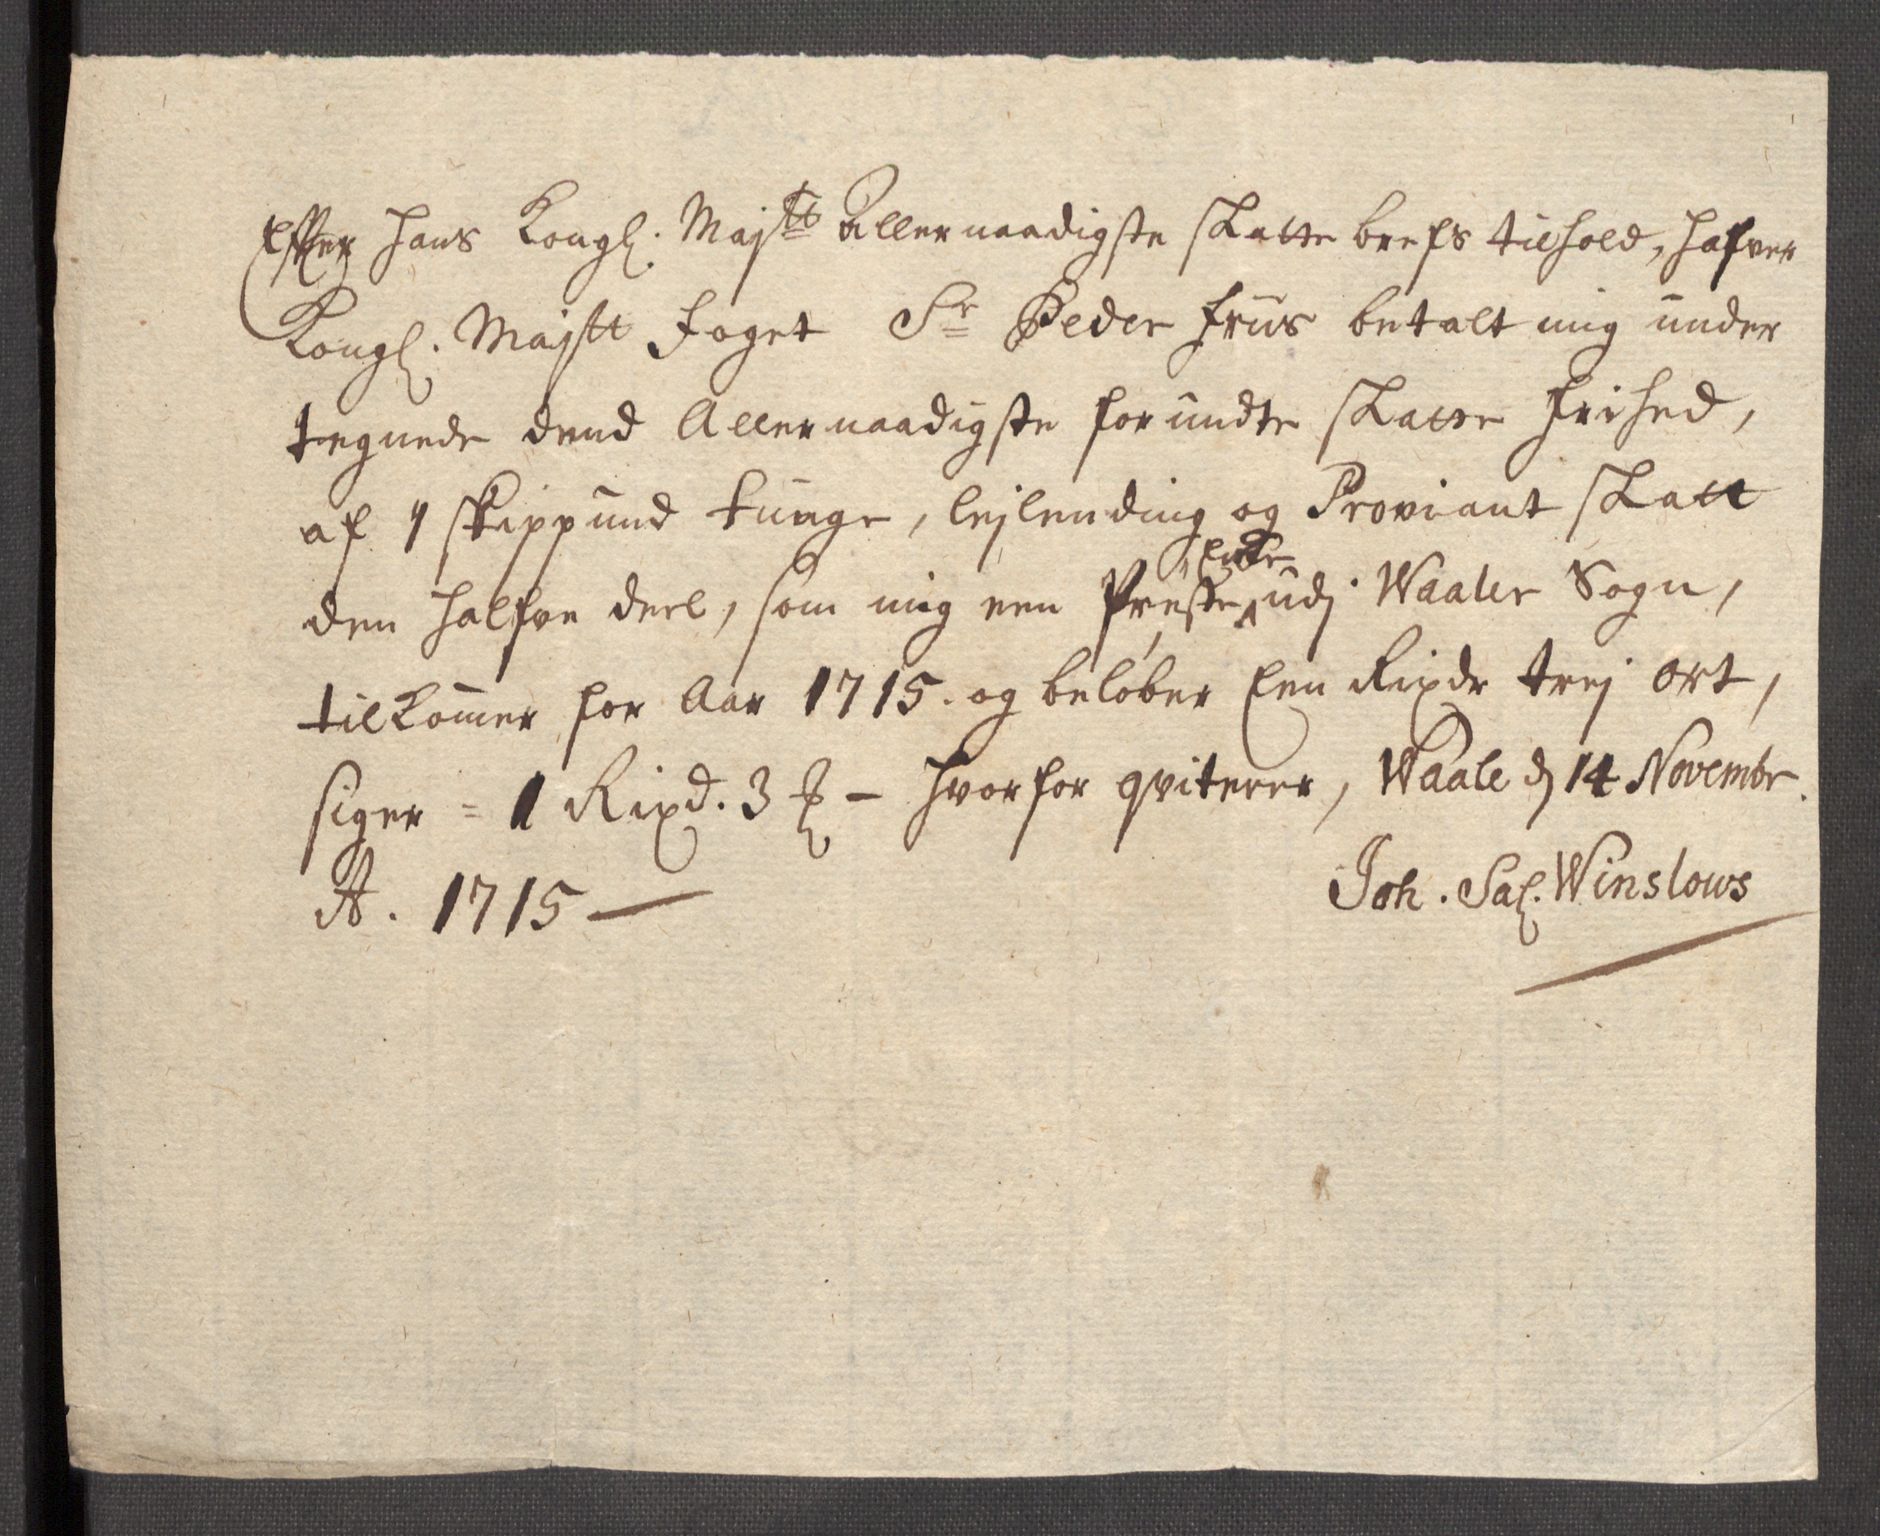 Efter Hans Kongl. Maj:tt Allernaadigste skatte brefs tilhold, hafver
Kongl. Maj:tt foget Sr Peder friis betalt mig under
tegnede dend Allernaadigste forundte skatte frihed,
af 1 skippund tunge, lejlending og Proviant skatt
den halfve deel, som mig een Præste Enke udj Waaler Sogn,
tilkom̄er for Aar 1715. og beløber Een Rixdr trej ort,
siger = 1 Rixd. 3 ℔ — hvorfor qviterer, Waale d 14 Novembr.
A. 1715 —
Joh. Sal. Winslows